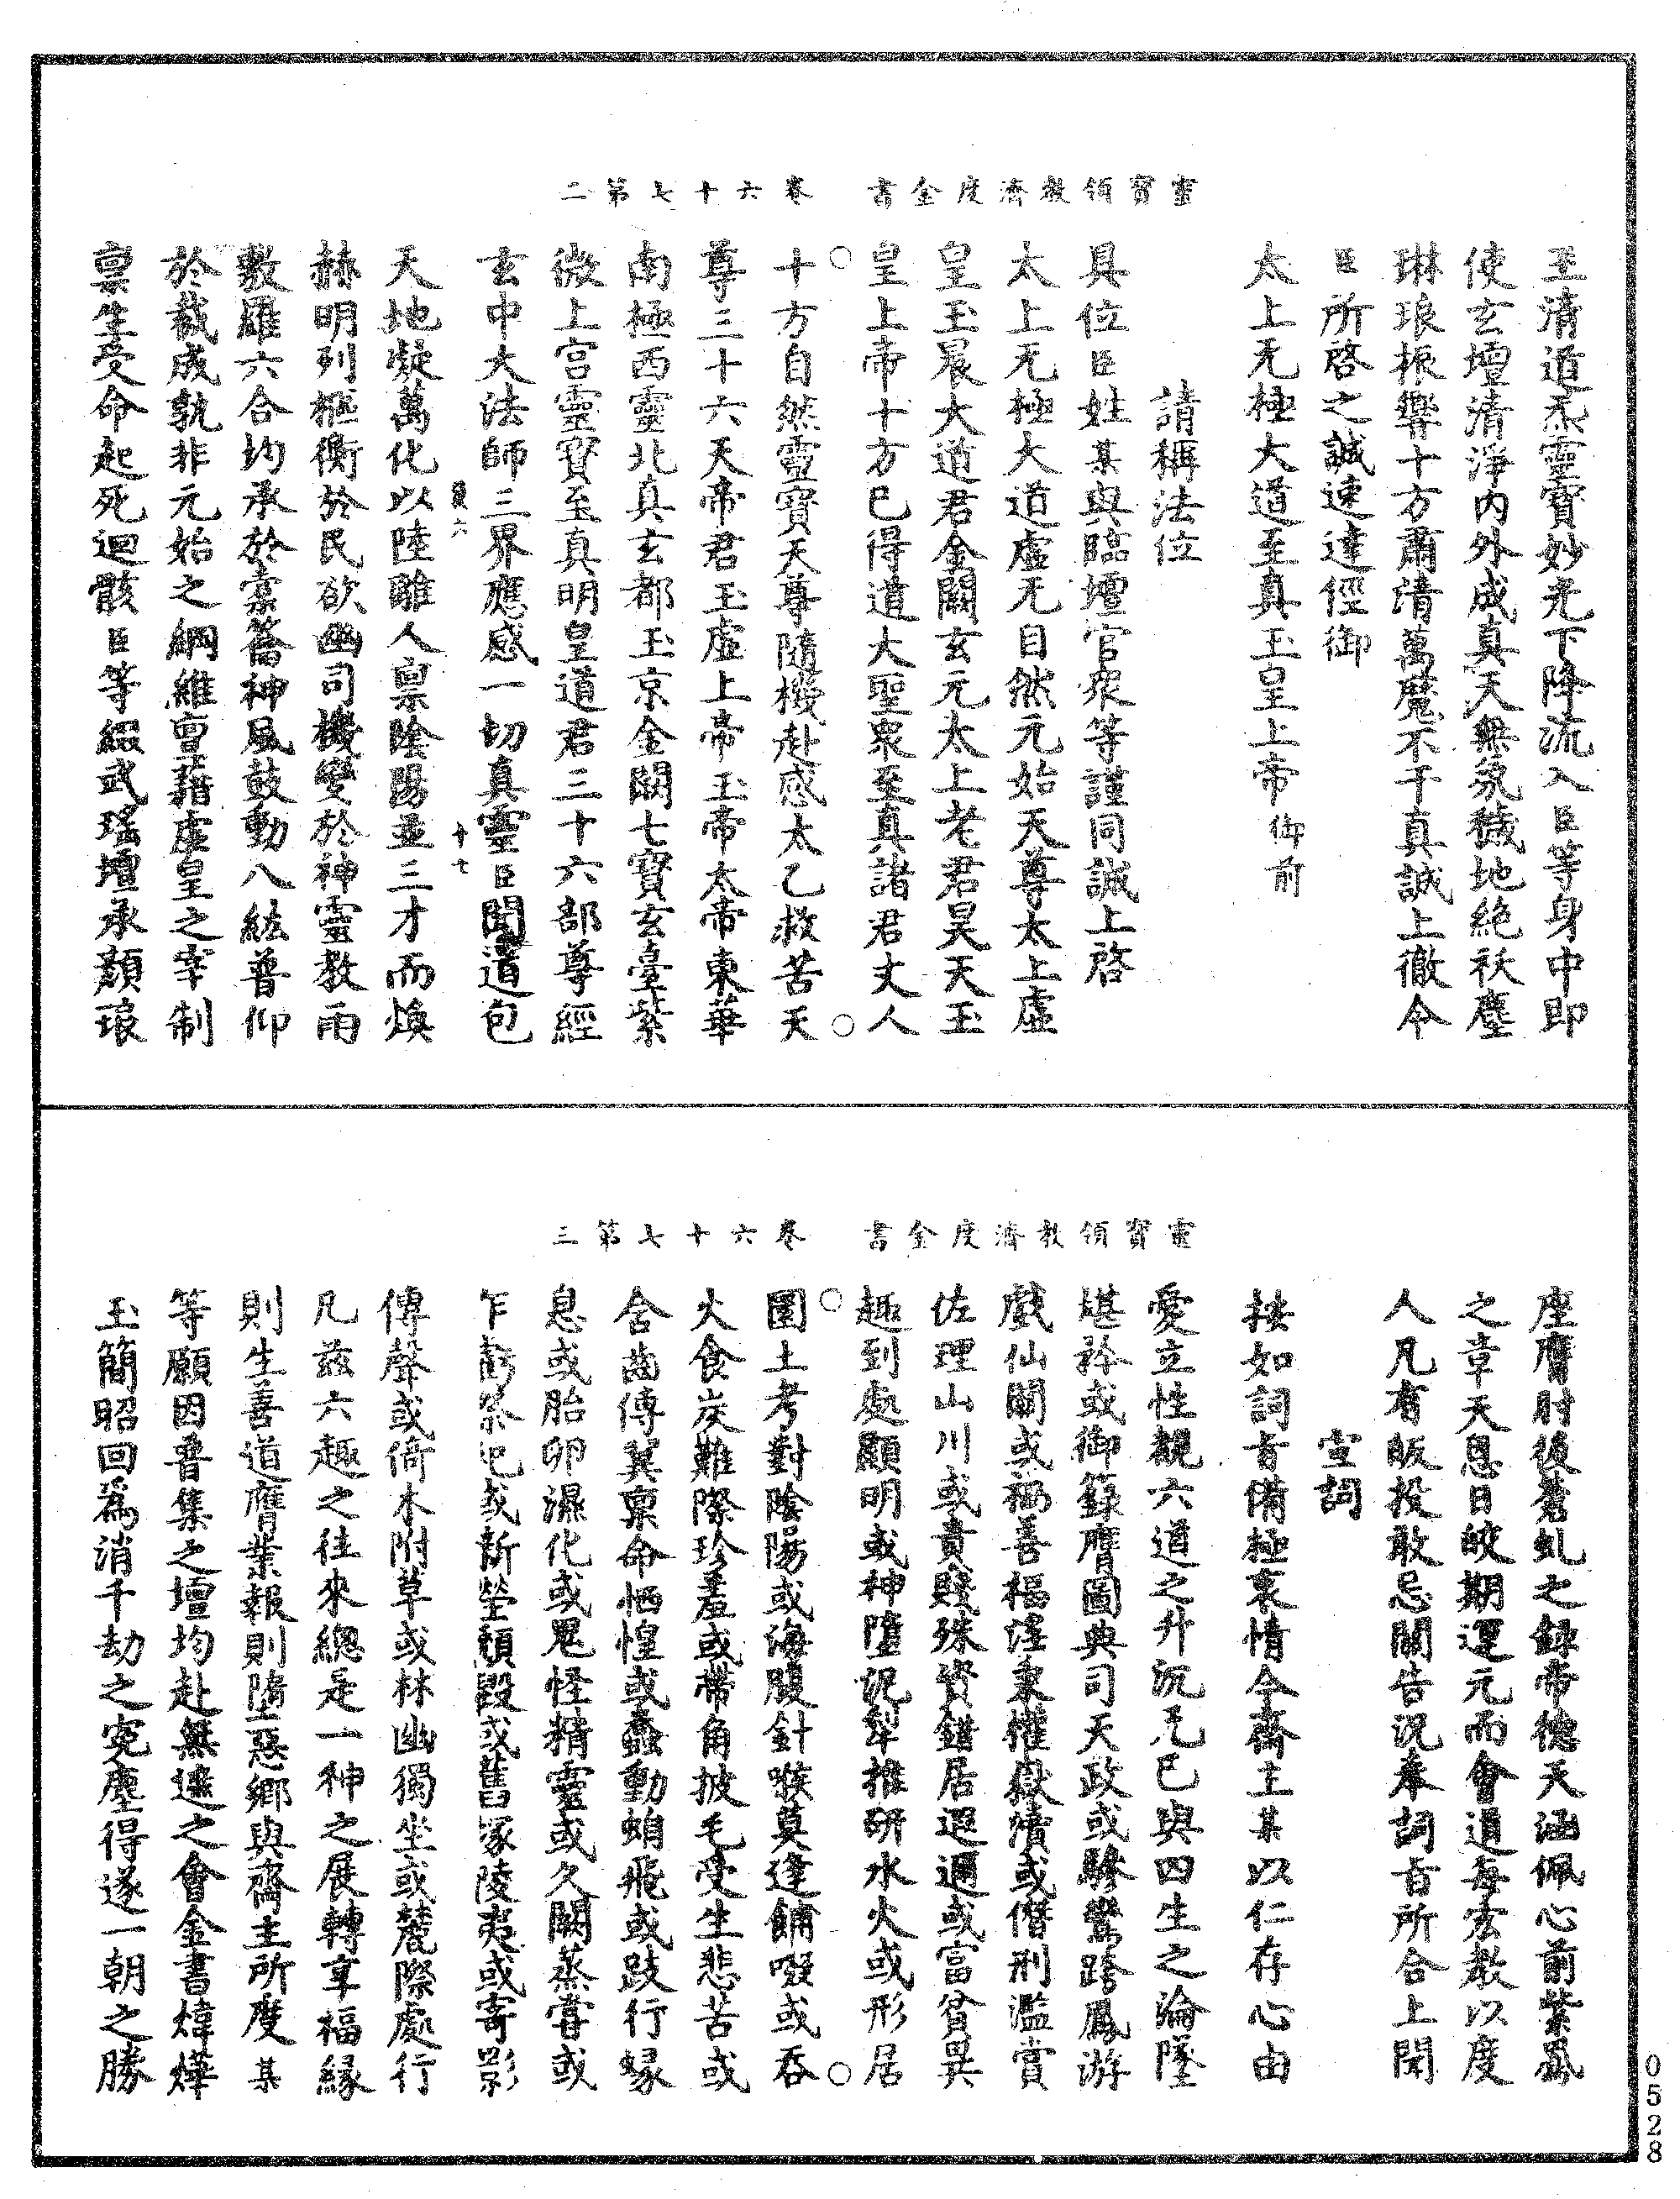 靈寶領教濟度金書　卷六十七第二
至清道炁靈寶妙光下降流入臣等身中即
使玄壇清淨內外成真天無氛穢地絕祅塵
琳琅振響十方肅清萬魔不干真誠上徹令
臣所啓之誠速達徑御
太上无極大道至真玉皇上帝御前
請稱法位
具位臣姓某與臨壇官衆等謹同誠上啓
太上无極大道虛无自然元始天尊太上虛
皇玉晨大道君金闕玄元太上老君昊天玉
皇上帝十方已得道大聖衆至真諸君丈人
十方自然靈寶天尊隨機赴感太乙救苦天
尊三十六天帝君玉虛上帝玉帝太帝東華
南極西靈北真玄都玉京金闕七寶玄臺紫
微上宮靈寶至真明皇道君三十六部尊經
玄中大法師三界應感一切真靈臣聞道包
六　十七
天地凝萬化以陸離人稟陰陽並三才而煥
赫明列樞衡於民欲幽司機變於神靈教雨
敷羅六合均承於橐籥神風鼓動八紘普仰
於裁成孰非元始之綱維亶藉虛皇之宰制
稟生受命起死迴骸臣等綴武瑤壇承顏琅
靈寶領教濟度金書　卷六十七第三
座膺肘後蒼虬之錄帝德天涵佩心前紫鳳
之章天恩日皎期運元而會道每宏教以度
人凡有皈投敢忘關告況奉詞旨所合上聞
宣詞
按如詞旨備極哀情今齋主某以仁存心由
愛立性覩六道之升沉无已與四生之淪墜
堪矜或御籙膺圖典司天政或驂鸞跨鳳游
戲仙關或禍善福淫秉權嶽瀆或僭刑濫賞
佐理山川或貴賤殊資錯居遐邇或富貧異
趣到處顯明或神墮況犁推研水火或形居
圜土考對陰陽或海腹針喉莫逢餔啜或吞
火食炭難際珍羞或帶角披毛受生悲苦或
含齒傳翼稟命恓惶或蠢動蜎飛或跂行蝝
息或胎卵濕化或鬼怪精靈或久闕蒸嘗或
乍虧祭祀或新塋頹毀或舊冢陵夷或寄影
傳聲或倚木附草或林幽獨坐或麓際處行
凡茲六趣之往來總是一神之展轉享福緣
則生善道膺業報則墮惡鄉與齋主所度某
等願因普集之壇均赴無遮之會金書煒燁
玉簡昭回為消千劫之寃塵得遂一朝之勝
0528